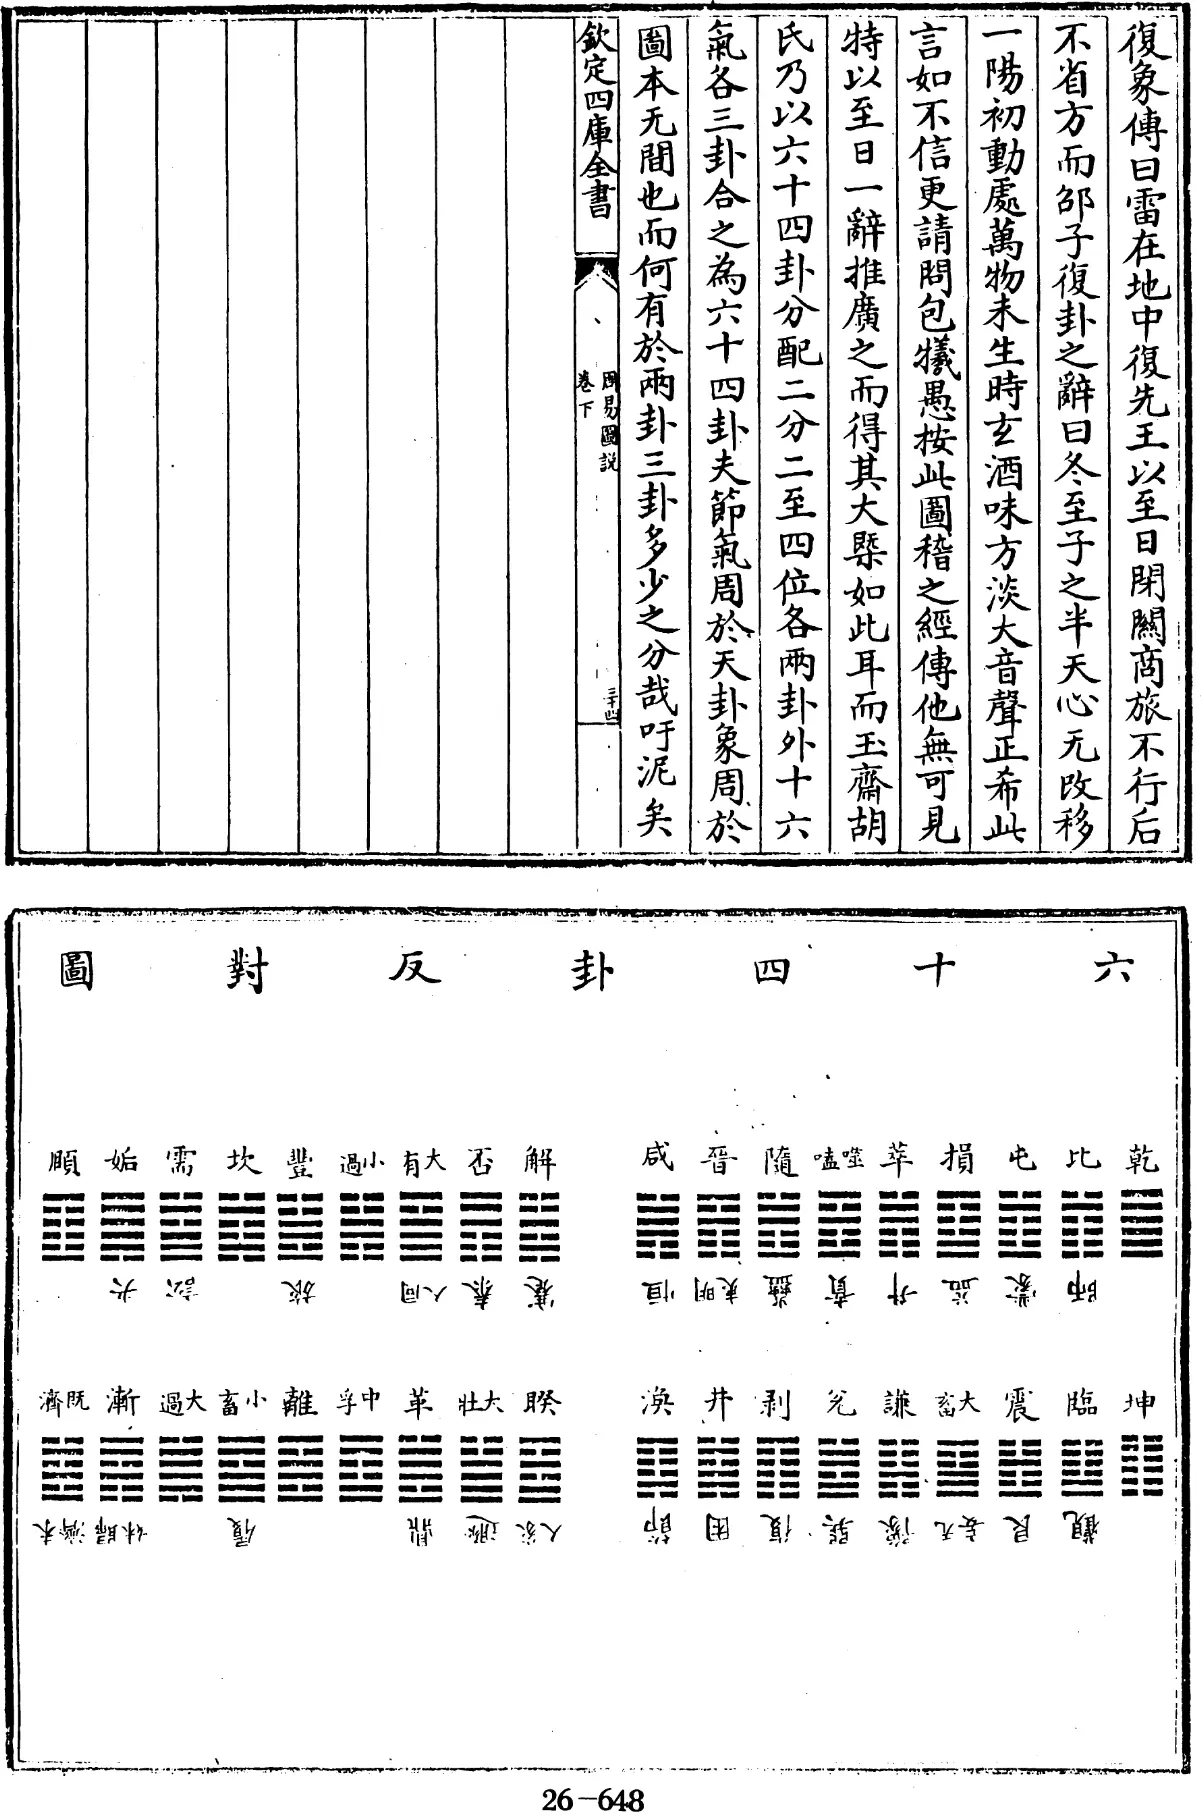 復象傳曰雷在地中復先王以至日閉關商旅不行后
不省方而邵子復卦之辭曰冬至子之半天心无改移
一陽初動處萬物未生時玄酒味方淡大音聲正希此
言如不信更請問包犧愚按此圖稽之經傳他無可見
特以至日一辭推廣之而得其大槩如此耳而玉齋胡
氏乃以六十四卦分配二分二至四位各兩卦外十六
氣各三卦合之為六十四卦夫節氣周於天卦象周於
圖本无間也而何有於兩卦三卦多少之分哉吁泥矣
欽定四庫全書
周易圖說
卷下
三十四
六十四卦反對圖
乾 比 屯 損 萃 噬嗑 隨 晉 咸 解 否 大有 小過 豐 坎 需 姤 頤
師 蒙 益 升 賁 蠱 明夷 恒 蹇 泰 同人 旅 訟 夬
坤 臨 震 大畜 謙 兌 剥 井 渙 睽 大壯 革 中孚 離 小畜 大過 漸 既濟
觀 艮 无妄 豫 巽 復 困 節 家人 遯 鼎 履 歸妹 未濟
26-648